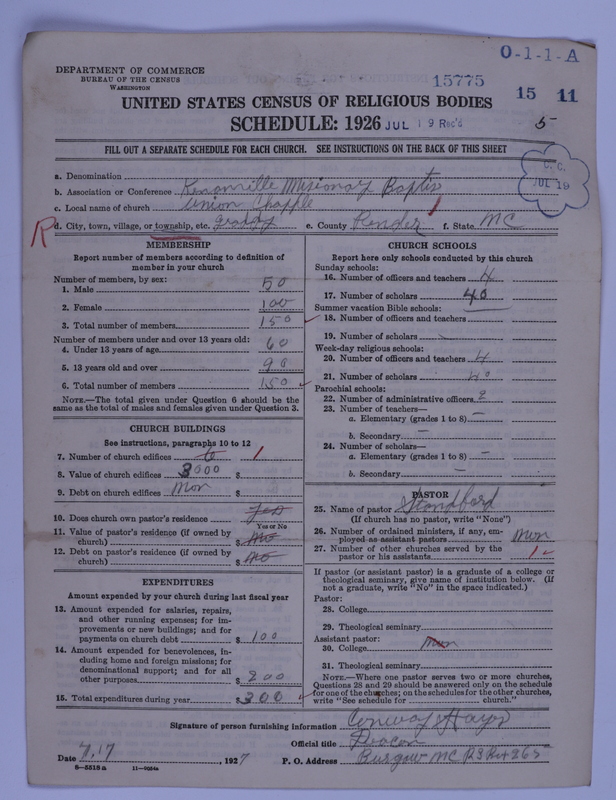 O-1-1-A
DEPARTMENT OF COMMERCE
BUREAU OF THE CENSUS
WASHINGTON
15775
15 11
UNITED STATES CENSUS OF RELIGIOUS BODIES
SCHEDULE: 1926 JUL 19 Rec'd 5
FILL OUT A SEPARATE SCHEDULE FOR EACH CHURCH. SEE INSTRUCTIONS ON THE BACK OF THIS SHEET
C. C.
JUL 19
a. Denomination
b. Association or Conference Kenansville Misionary Baptis
c. Local name of church Union Chapple
R d. City, town, village, or township, etc. Grady e. County Pender f. State NC
MEMBERSHIP
Report number of members according to definition of
member in your church
Number of members, by sex:
1. Male 50
2. Female 100
3. Total number of members 150
Number of members under and over 13 years old:
4. Under 13 years of age 60
5. 13 years old and over 90
6. Total number of members 150
NOTE.—The total given under Question 6 should be the
same as the total of males and females given under Question 3.
CHURCH BUILDINGS
See instructions, paragraphs 10 to 12
7. Number of church edifices 1
8. Value of church edifices 3000 $
9. Debt on church edifices Non $
10. Does church own pastor's residence
Yes or No
11. Value of pastor's residence (if owned by
church) $ No
12. Debt on pastor's residence (if owned by
church) $ No
EXPENDITURES
Amount expended by your church during last fiscal year
13. Amount expended for salaries, repairs,
and other running expenses; for im-
provements or new buildings; and for
payments on church debt $ 100
14. Amount expended for benevolences, in-
cluding home and foreign missions; for
denominational support; and for all
other purposes $ 200
15. Total expenditures during year $ 300
CHURCH SCHOOLS
Report here only schools conducted by this church
Sunday schools:
16. Number of officers and teachers 4
17. Number of scholars 40
Summer vacation Bible schools:
18. Number of officers and teachers
19. Number of scholars
Week-day religious schools:
20. Number of officers and teachers 4
21. Number of scholars 40
Parochial schools:
22. Number of administrative officers 2
23. Number of teachers—
a. Elementary (grades 1 to 8) –
b. Secondary –
24. Number of scholars—
a. Elementary (grades 1 to 8) –
b. Secondary –
PASTOR
25. Name of pastor Standford
(If church has no pastor, write "None")
26. Number of ordained ministers, if any, em-
ployed as assistant pastors Non
27. Number of other churches served by the
pastor or his assistants 1
If pastor (or assistant pastor) is a graduate of a college or
theological seminary, give name of institution below. (If
not a graduate, write "No" in the space indicated.)
Pastor:
28. College
29. Theological seminary
Assistant pastor:
30. College Non
31. Theological seminary
NOTE.—Where one pastor serves two or more churches,
Questions 28 and 29 should be answered only on the schedule
for one of the churches; on the schedules for the other churches,
write "See schedule for church."
Signature of person furnishing information Conway Hayes
Official title Deacon
Date 7.17, 1927 P. O. Address Burgaw NC R3 Bx 265
8—5518a 11—9064a